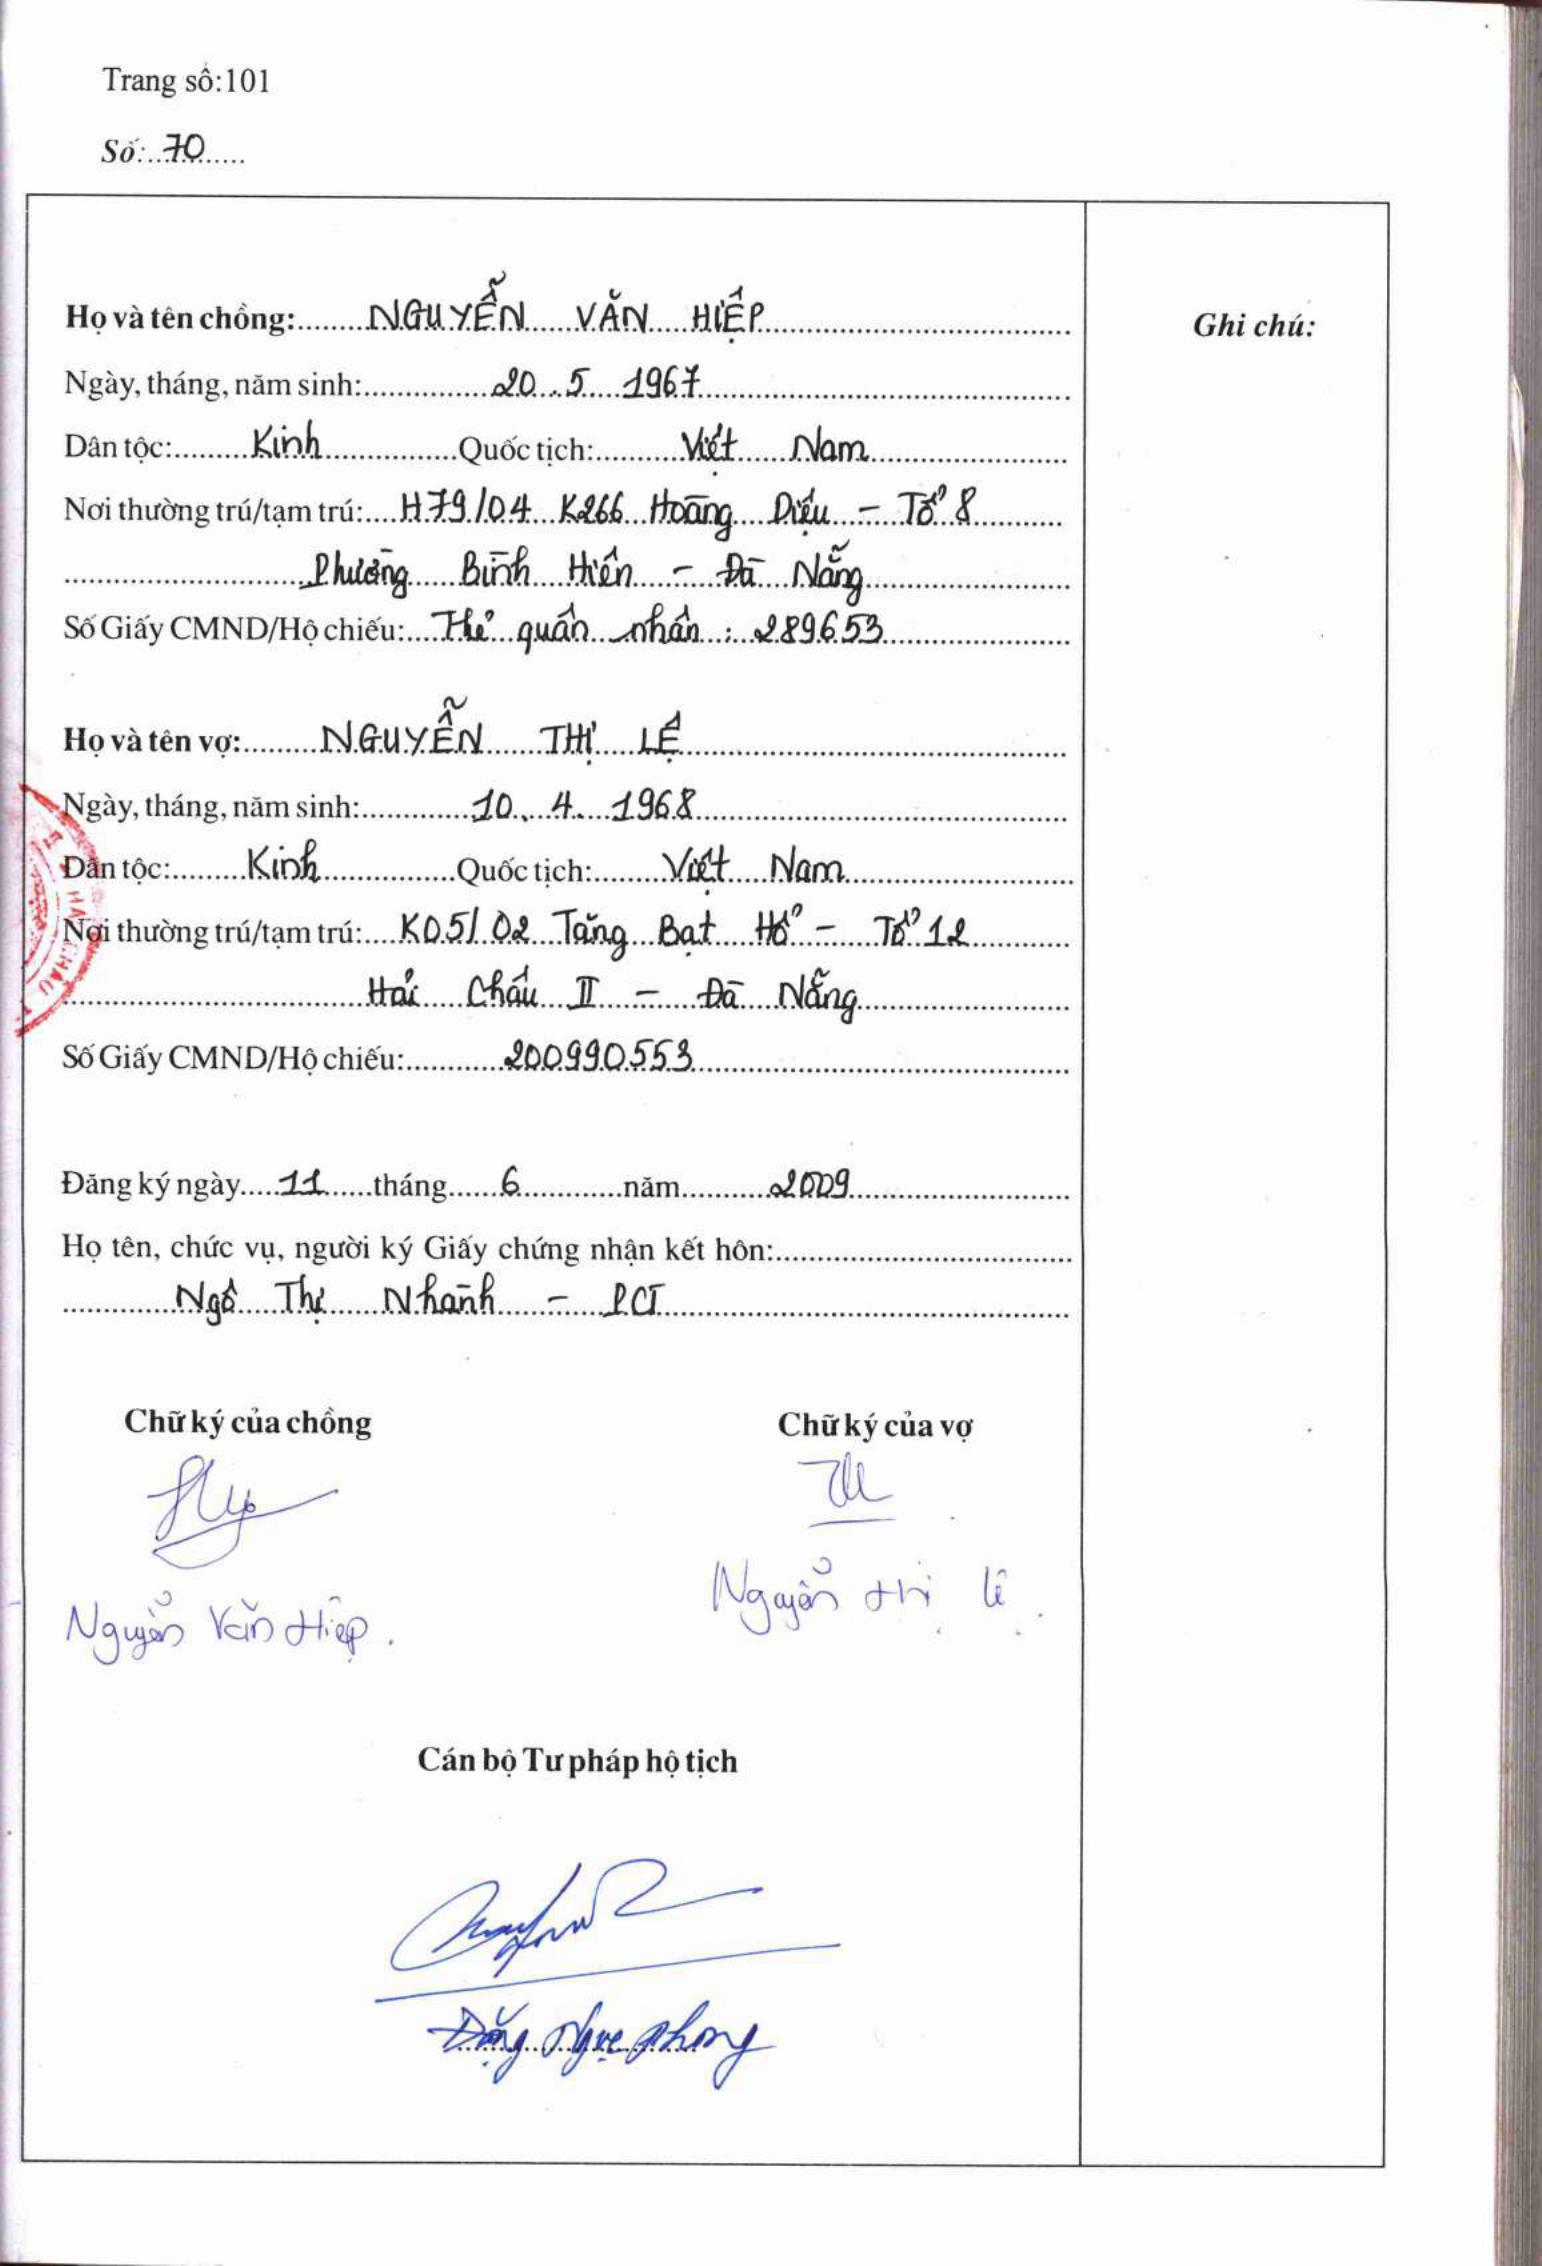 Trang số:101
Số: 70
Họ và tên chồng: NGUYỄN VĂN HIỆP
Ghi chú:
Ngày, tháng, năm sinh: 20. 5 1967
Dân tộc: Kinh Quốc tịch: Việt Nam
Nơi thường trú/tạm trú: H79/04 K266 Hoàng Diệu - Tổ 8
Phường Bình Hiên - Đà Nẵng
Số Giấy CMND/Hộ chiếu: Thẻ quân nhân : 289653
Họ và tên vợ: NGUYỄN THỊ LỆ
Ngày, tháng, năm sinh: 10. 4. 1968
Dân tộc: Kinh Quốc tịch: Việt Nam
Nơi thường trú/tạm trú: K05/02 Tăng Bạt Hổ - Tổ 12
Hải Châu II - Đà Nẵng
Số Giấy CMND/Hộ chiếu: 200990553
Đăng ký ngày 11 tháng 6 năm 2009
Họ tên, chức vụ, người ký Giấy chứng nhận kết hôn:
Ngô Thị Nhành - PCT
Chữ ký của chồng Chữ ký của vợ
Nguyễn Văn Hiệp. Nguyễn thị Lệ.
Cán bộ Tư pháp hộ tịch
Đặng Ngọc Phong